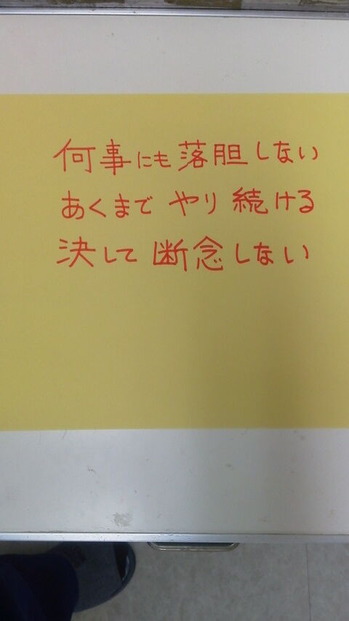 何事にも落胆しない
あくまでやり続ける
決して断念しない